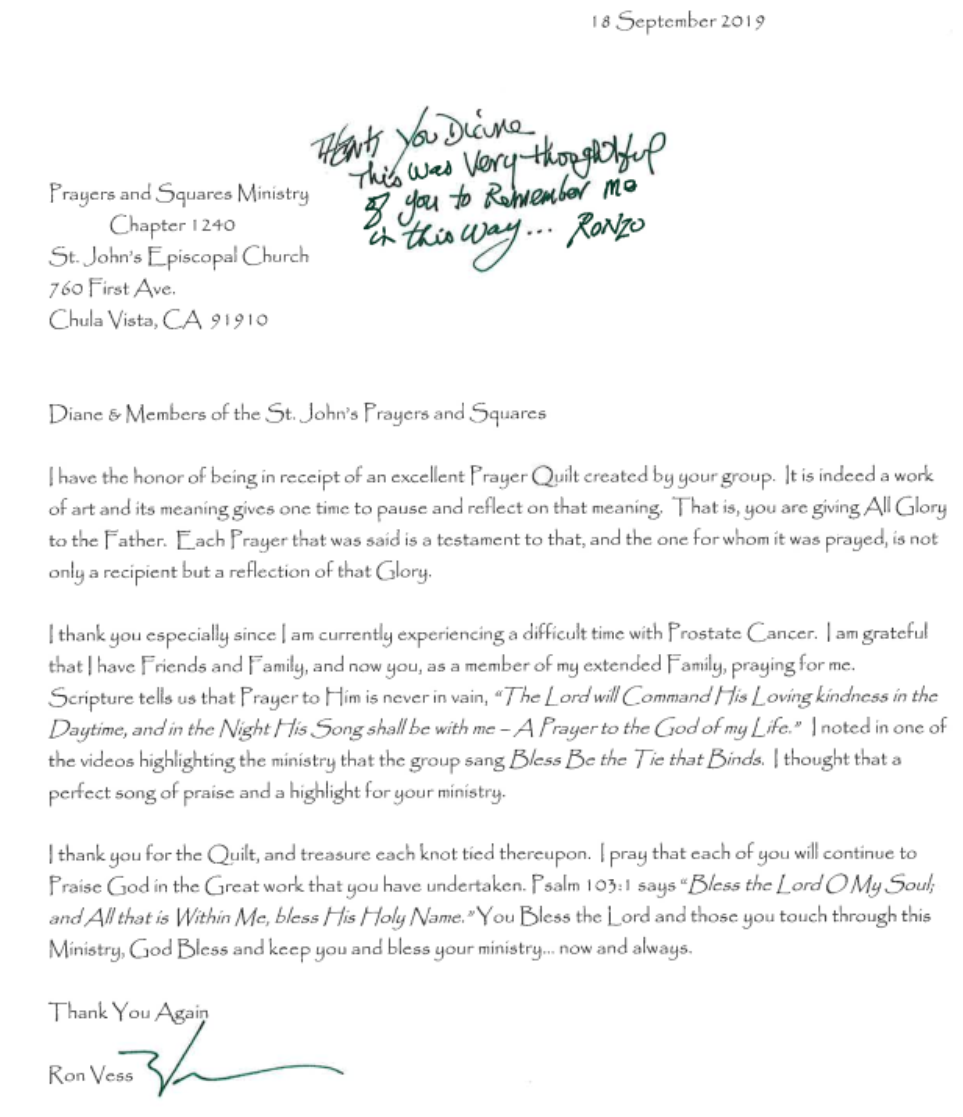 18 September 2019
Thank You Diane
This was Very thoughtful
of you to Remember me
in this way... RONZO
Prayers and Squares Ministry
Chapter 1240
St. John's Episcopal Church
760 First Ave.
Chula Vista, CA 91910
Diane & Members of the St. John's Prayers and Squares
I have the honor of being in receipt of an excellent Prayer Quilt created by your group. It is indeed a work
of art and its meaning gives one time to pause and reflect on that meaning. That is, you are giving All Glory
to the Father. Each Prayer that was said is a testament to that, and the one for whom it was prayed, is not
only a recipient but a reflection of that Glory.
I thank you especially since I am currently experiencing a difficult time with Prostate Cancer. I am grateful
that I have Friends and Family, and now you, as a member of my extended Family, praying for me.
Scripture tells us that Prayer to Him is never in vain, "The Lord will Command His Loving kindness in the
Daytime, and in the Night His Song shall be with me – A Prayer to the God of my Life." I noted in one of
the videos highlighting the ministry that the group sang Bless Be the Tie that Binds. I thought that a
perfect song of praise and a highlight for your ministry.
I thank you for the Quilt, and treasure each knot tied thereupon. I pray that each of you will continue to
Praise God in the Great work that you have undertaken. Psalm 103:1 says "Bless the Lord O My Soul;
and All that is Within Me, bless His Holy Name." You Bless the Lord and those you touch through this
Ministry, God Bless and keep you and bless your ministry... now and always.
Thank You Again
Ron Vess